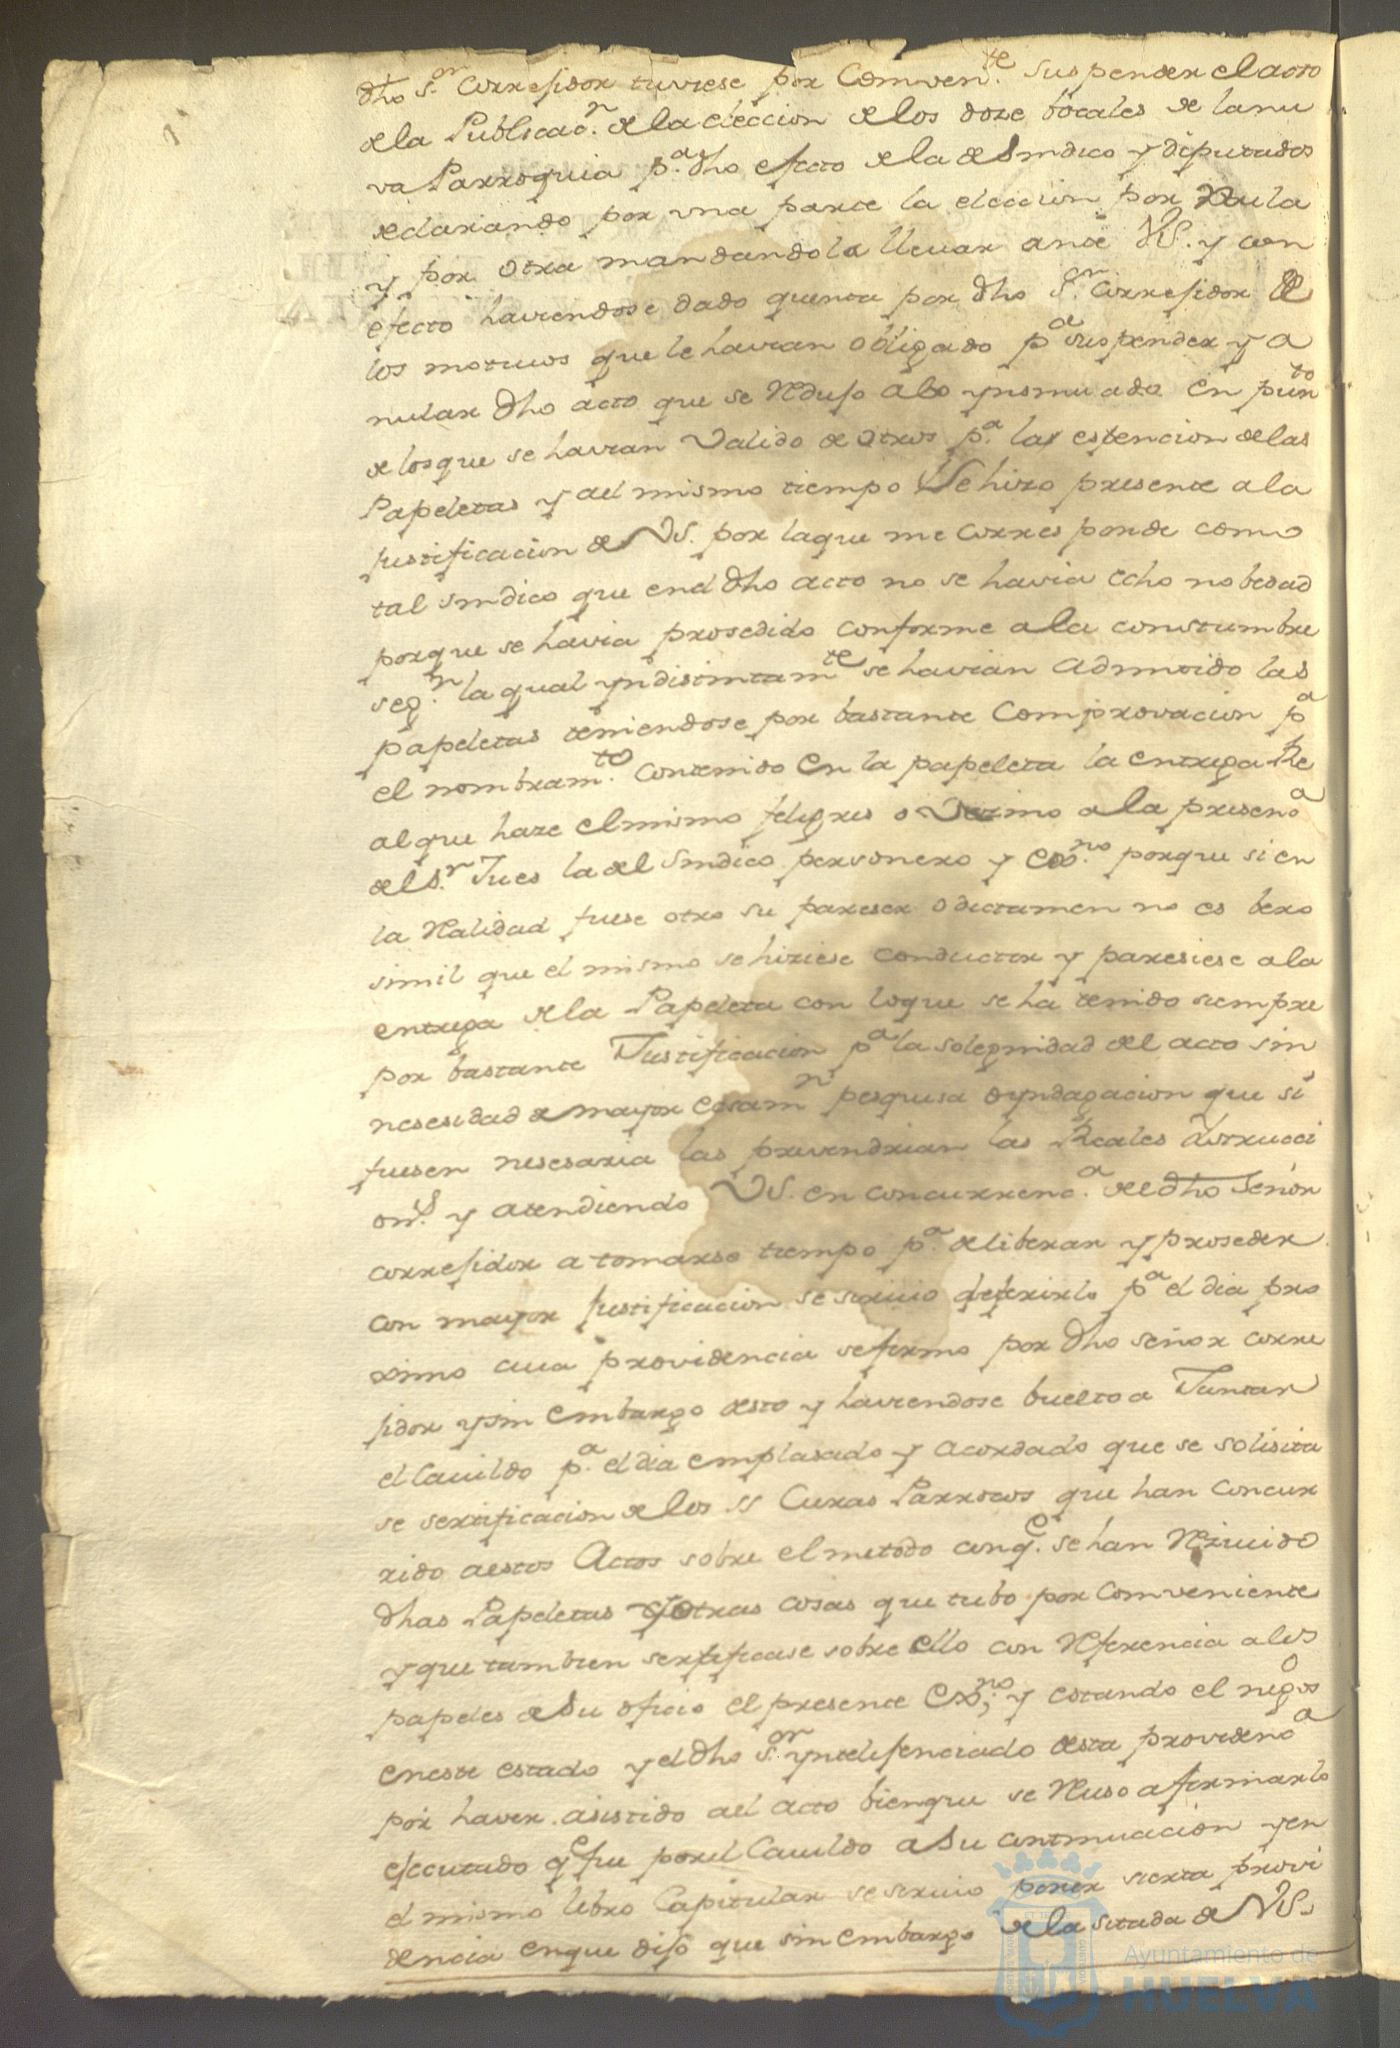 dho S.or Corregidor tuviese por Comven.te suspender el acto
de la Publicac.n de la eleccion de los doze bocales de la nu
va Parroquia p.a dho efecto de la de Sindico y diputados
declarando por una parte la eleccion por Nula
y por otra mandandola llevar ante VS. y con
efecto haviendose dado quenta por dho S.or Corregidor de
los motivos que le havian obligado p.a suspender y a
nular dho acto que se redujo a lo ynsinuado en pun.to
de los que se havian Valido de otros p.a la estencion de las
Papeletas y al mismo tiempo Se hizo presente a la
justificacion de VS. por la que me corresponde como
tal sindico que en el dho acto no se havia echo nobedad
porque se havia prosedido conforme a la constumbre
seg.n la qual yndistintam.te se havian admitido las
papeletas teniendose por bastante Comprovacion p.a
el nombram.to contenido en la papeleta la entrega Re
al que haze el mismo feligres o Vezino a la presenc.a
del S.r Jues la del Sindico personero y Es.no porque si en
la Realidad fuese otro su pareser o dictamen no es bero
simil que el mismo se hiziese conductor y paresiese a la
entrega de la Papeleta con lo que se ha tenido siempre
por bastante Justificacion p.a la solegnidad del acto sin
nesesidad de mayor Exsam.n pesquisa o yndagacion que si
fuesen nesesaria las prevendrian las Reales Ystrucci
on.s y atendiendo VS. en concurrenc.a del dho Señor
corregidor a tomarse tiempo p.a deliberar y proseder
con mayor justificacion se sirvio deferirlo p.a el dia pro
ximo cuia providencia se firmo por dho señor corre
jidor y sin embargo desto y haviendose buelto a Juntar
el Cavildo p.a el dia emplasado y acordado que se solisita
se sertificacion de los SS Curas Parrocos que han concur
rido aestos Actos sobre el metodo conq.e se han Resivido
dhas Papeletas y otras cosas que tubo por comveniente
y que tambien sertificase sobre ello con Referencia a los
papeles de su oficio el presente Es.no y estando el negos.o
eneste estado y el dho S.or ynteligenciado desta providenc.a
por haver asistido ael acto bienque se Reuso afirmarlo
ejecutado q.e fue por el Cavildo a su continuacion y en
el mismo libro Capitular se sirvio poner sierta provi
dencia enque dijo que sin embargo de la sitada de VS.
Ayuntamiento de
HUELVA